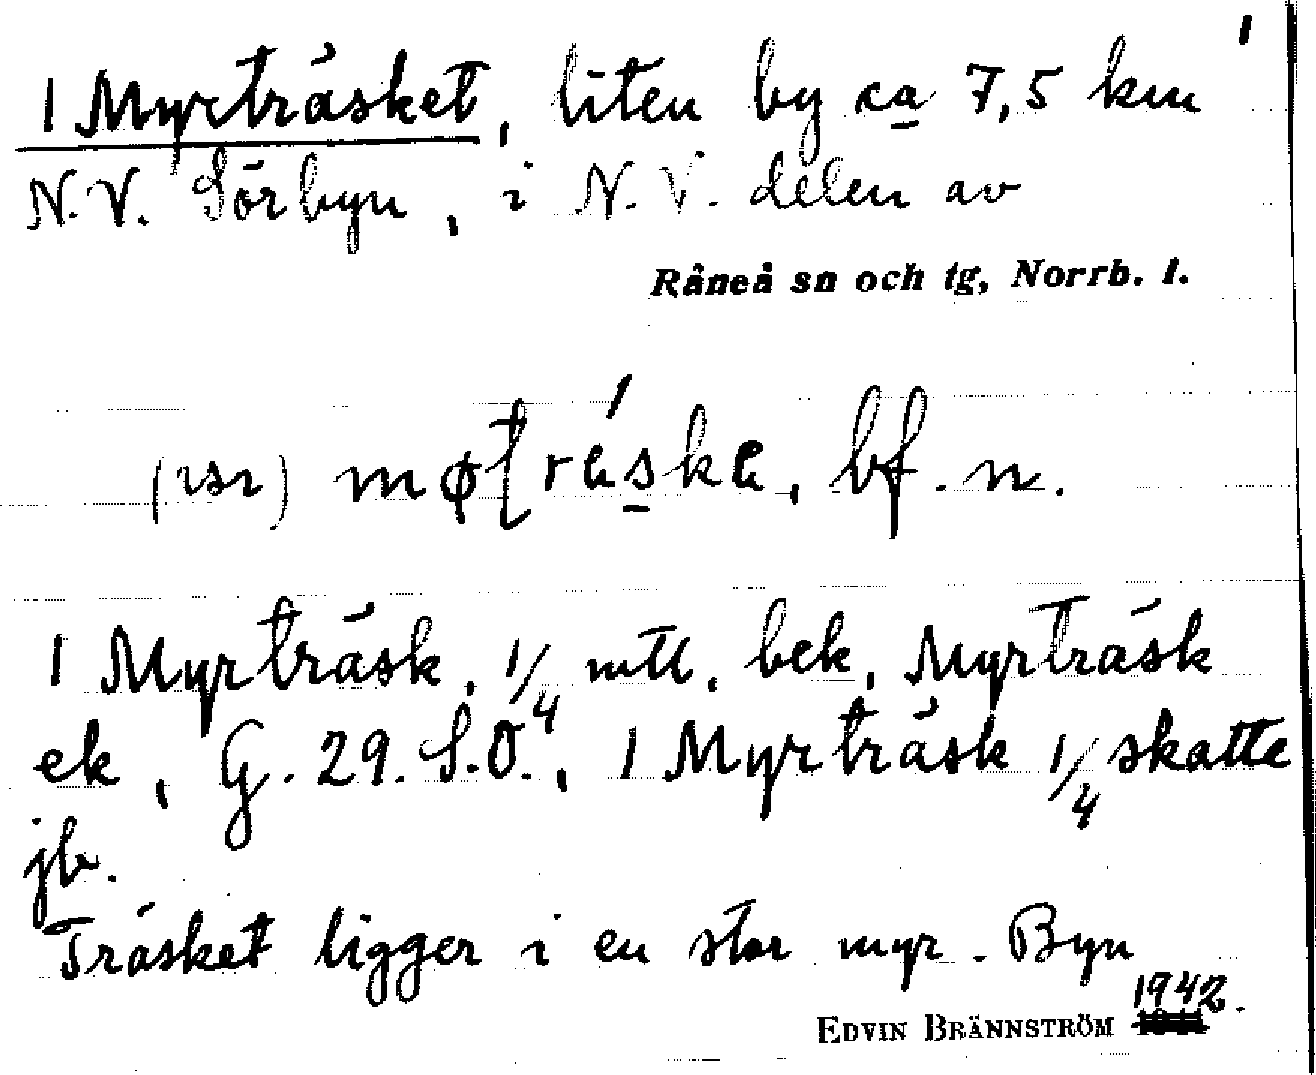 1
1 Myrträsket, liten by ca 7,5 km
N.V. Sörbyn, i N.V. delen av
Råneå sn och tg, Norrb. l.
bf. n.
1 Myrträsk, 1/4 mtl, bek, Myrträsk
ek, G. 29. S.O., 1 Myrträsk 1/4 skatte
jb.
Träsket ligger i en stor myr. Byn
1942.
EDVIN BRÄNNSTRÖM